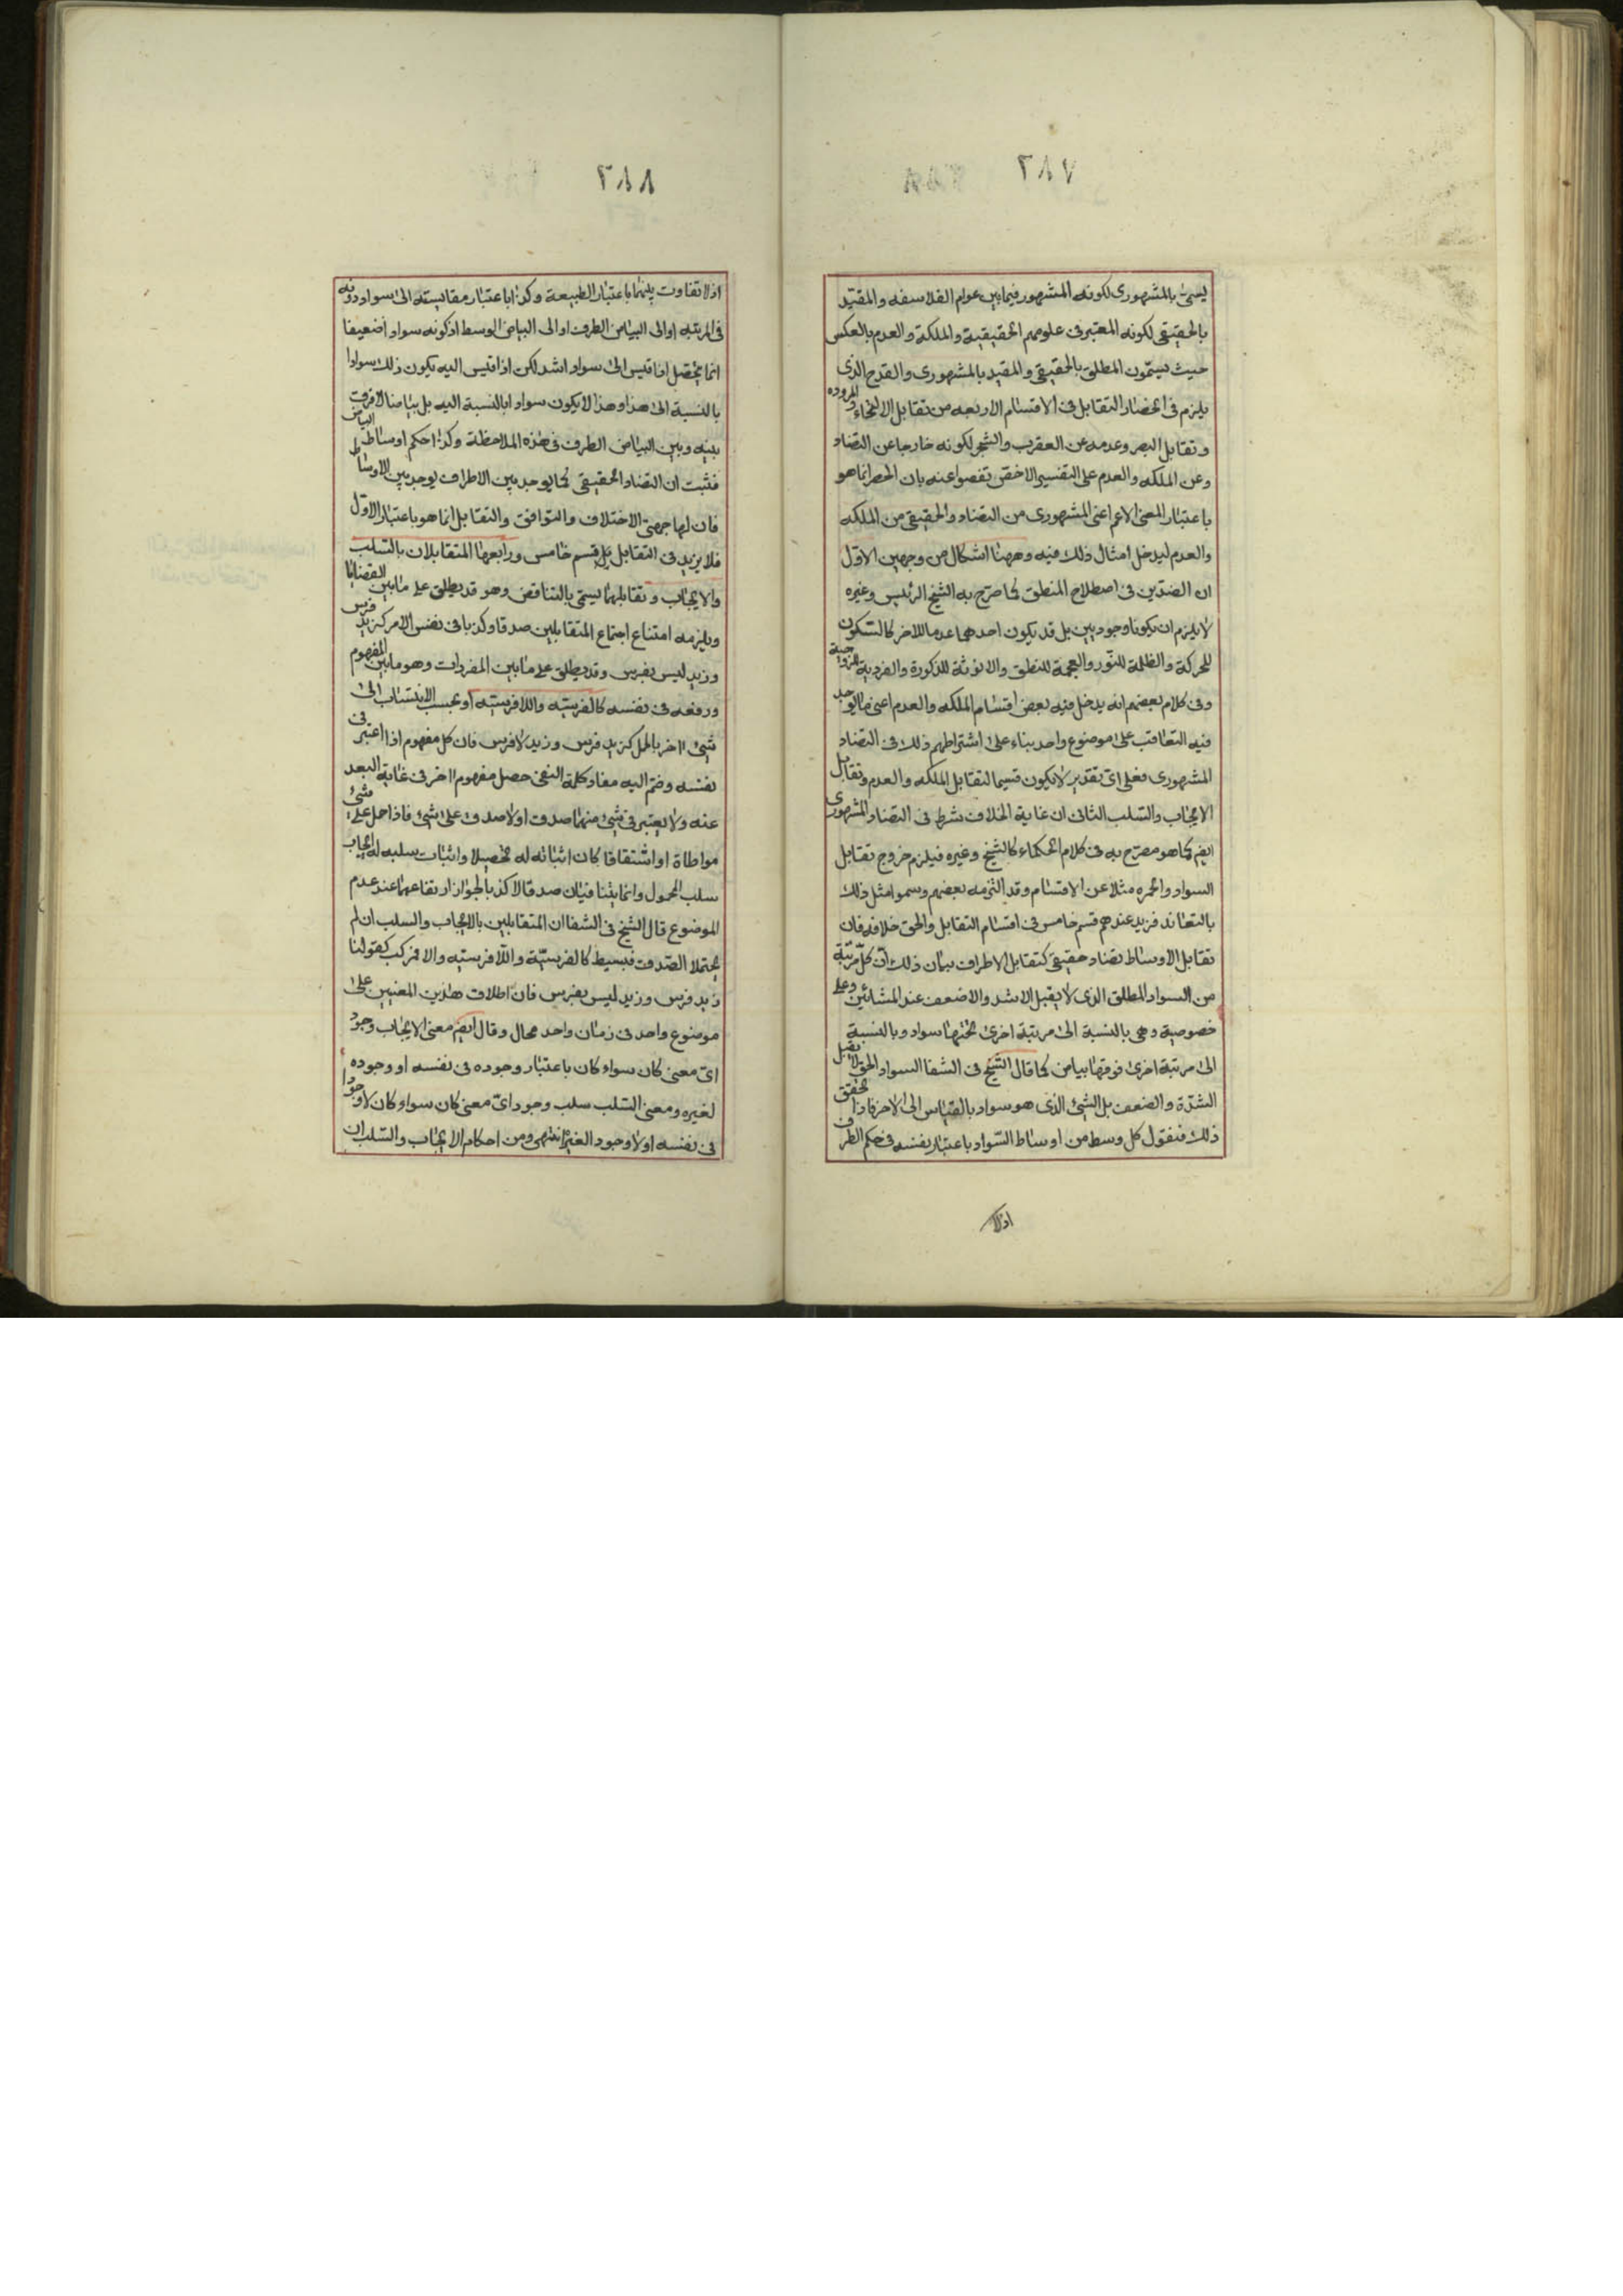 ٢٨٧
يسمى بالمشهورى لكونه المشهور فيما بين عوام الفلاسفه والمقيد
بالحقيقى لكونه المعتبر فى علومهم الحقيقية والملكة والعدم بالعكس
حيث يسمون المطلق بالحقيقى والمقيد بالمشهورى والقدح الذى
يلزم فى انحصار التقابل فى الاقسام الاربعه من تقابل الالتحاء والمروده
وتقابل البصر وعدمه عن العقرب والشجر لكونه خارجا عن التضاد
وعن الملكه والعدم على التفسير الاخص تفصوا عنه بان الحصر انما هو
باعتبار المعنى الاعم اعنى المشهورى من التضاد والحقيقى من الملكه
والعدم ليدخل امثال ذلك فيه وههنا اشكال من وجهين الاول
ان الضدين فى اصطلاح المنطق كما صرح به الشيخ الرئيس وغيره
لا يلزم ان يكونا وجوديين بل قد يكون احدهما عدما للاخر كالسكون
للحركة والظلمة للنور والعجمة للنطق والانوثة للذكورة والفردية للزوجية
وفى كلام بعضهم انه يدخل فيه بعض اقسام الملكه والعدم اعنى ما يوجد
فيه التعاقب على موضوع واحد بناء على اشتراطهم ذلك فى التضاد
المشهورى فعلى اى تقدير لا يكون قسيما لتقابل الملكه والعدم وتقابل
الايجاب والسلب الثانى ان غاية الخلاف شرط فى التضاد المشهورى
ايضا كما هو مصرح به فى كلام الحكماء كالشيخ وغيره فيلزم خروج تقابل
السواد والحمره مثلا عن الاقسام وقد التزمه بعضهم وسموا مثل ذلك
بالتعاند فزيد عندهم قسم خامس فى اقسام التقابل والحق خلافه فان
تقابل الاوساط تضاد حقيقى كتقابل الاطراف بيان ذلك ان كل مرتبة
من السواد المطلق الذى لا يقبل الاشد والاضعف عند المشائين وعلى
خصوصية وهى بالنسبة الى مرتبة اخرى تحتها سواد وبالنسبة
الى مرتبة اخرى فوقها بياض كما قال الشيخ فى الشفا السواد الحق لا يقبل
الشدة والضعف بل الشئ الذى هو سواد بالقياس الى الاخر فاذا تحقق
ذلك فنقول كل وسط من اوساط السواد باعتبار نفسه فى حكم الطرف
اذلا
٢٨٨
اذلا تفاوت بينهما باعتبار الطبيعة وكذا باعتبار مقايسته الى سواد دونه
فى المرتبه او الى البياض الطرف او الى البياض الوسط اذ كونه سوادا ضعيفا
انما يتحصل اذا قيس الى سواد اشد لكن اذا قيس اليه يكون ذلك سوادا
بالنسبة الى هذا وهذا لا يكون سوادا بالنسبة اليه بل بياضا لا فرق
بينه وبين البياض الطرف فى هذه الملاحظة وكذا حكم اوساط البياض
فثبت ان التضاد الحقيقى كما يوجد بين الاطراف يوجد بين الاوساط
فان لها جهتى الاختلاف والتوافق والتقابل انما هو باعتبار الاول
فلا يزيد فى التقابل قسم خامس ورابعها المتقابلان بالسلب
والايجاب وتقابلهما يسمى بالتناقض وهو قد يطلق على ما بين القضايا
ويلزمه امتناع اجتماع المتقابلين صدقا وكذبا فى نفس الامر كزيد فرس
وزيد ليس بفرس وقد يطلق على ما بين المفردات وهو ما بين المفهوم
ورفعه فى نفسه كالفرسيه واللافرسيه او بحسب الانتساب الى
شئ اخر بالحمل كزيد فرس وزيد لا فرس فان كل مفهوم اذا اعتبر فى
نفسه وضم اليه مفاد كلمة النفى حصل مفهوم اخر فى غاية البعد
عنه ولا يعتبر فى شئ منهما صدق او لا صدق على شئ فاذا حمل على شئ
مواطاة او اشتقاقا كان اثباته له تحصيلا واثبات سلبه له ايجاب
سلب المحمول وانما يتنافيان صدقا لا كذبا لجواز ارتفاعهما عند عدم
الموضوع قال الشيخ فى الشفا ان المتقابلين بالايجاب والسلب ان لم
يحتملا الصدق فبسيط كالفرسيّة واللافرسيه والا فمركب كقولنا
زيد فرس وزيد ليس بفرس فان اطلاق هذين المعنيين على
موضوع واحد فى زمان واحد محال وقال ايضا معنى الايجاب وجود
اى معنى كان سواء كان باعتبار وجوده فى نفسه او وجوده
لغيره ومعنى السلب سلب وجود اى معنى كان سواء كان لا وجودا
فى نفسه او لا وجود الغيره انتهى ومن احكام الايجاب والسلب ان